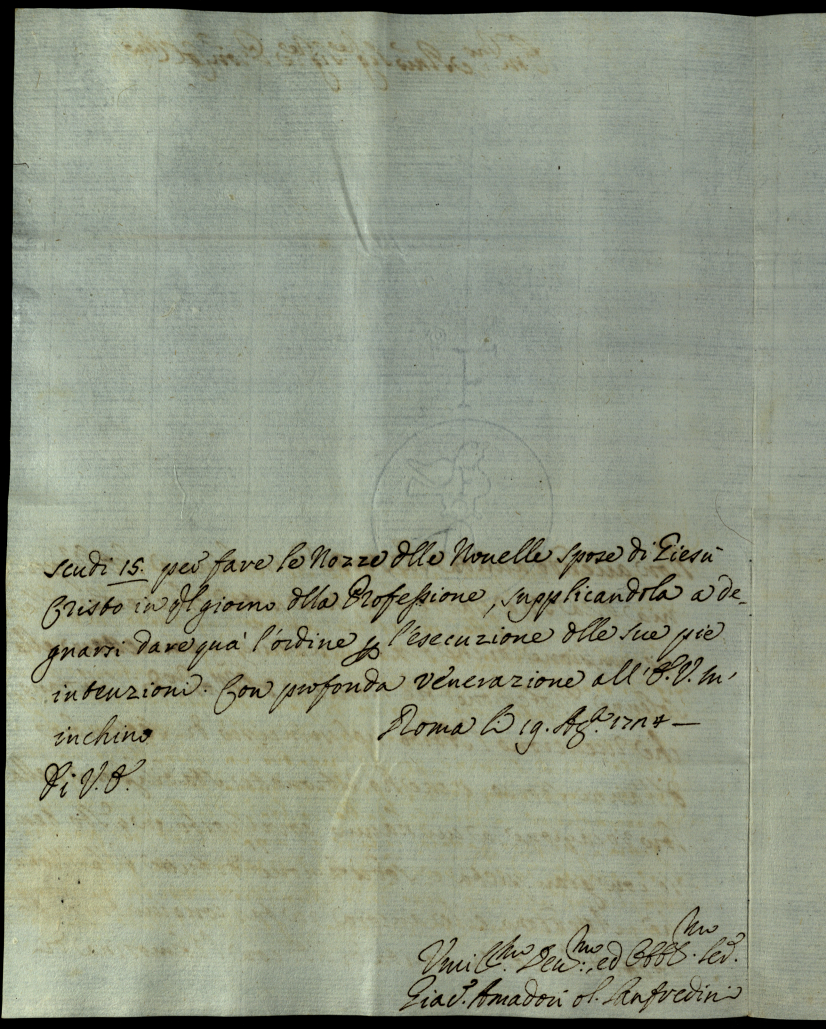 scudi 15. per fare le Nozze dlle Nouelle spose di Giesù
Cristo in ql giorno dlla Professione, supplicandola a de-
gnarsi dare quà l'ordine p l'esecuzione dlle sue pie
intenzioni. Con profonda venerazione all' V. m'
inchino Roma li 19. Ag.
Di V.
Umil.mo Deu.mo, ed Obbl.mo Ser.
Giac. Amadori ol. Lanfredini